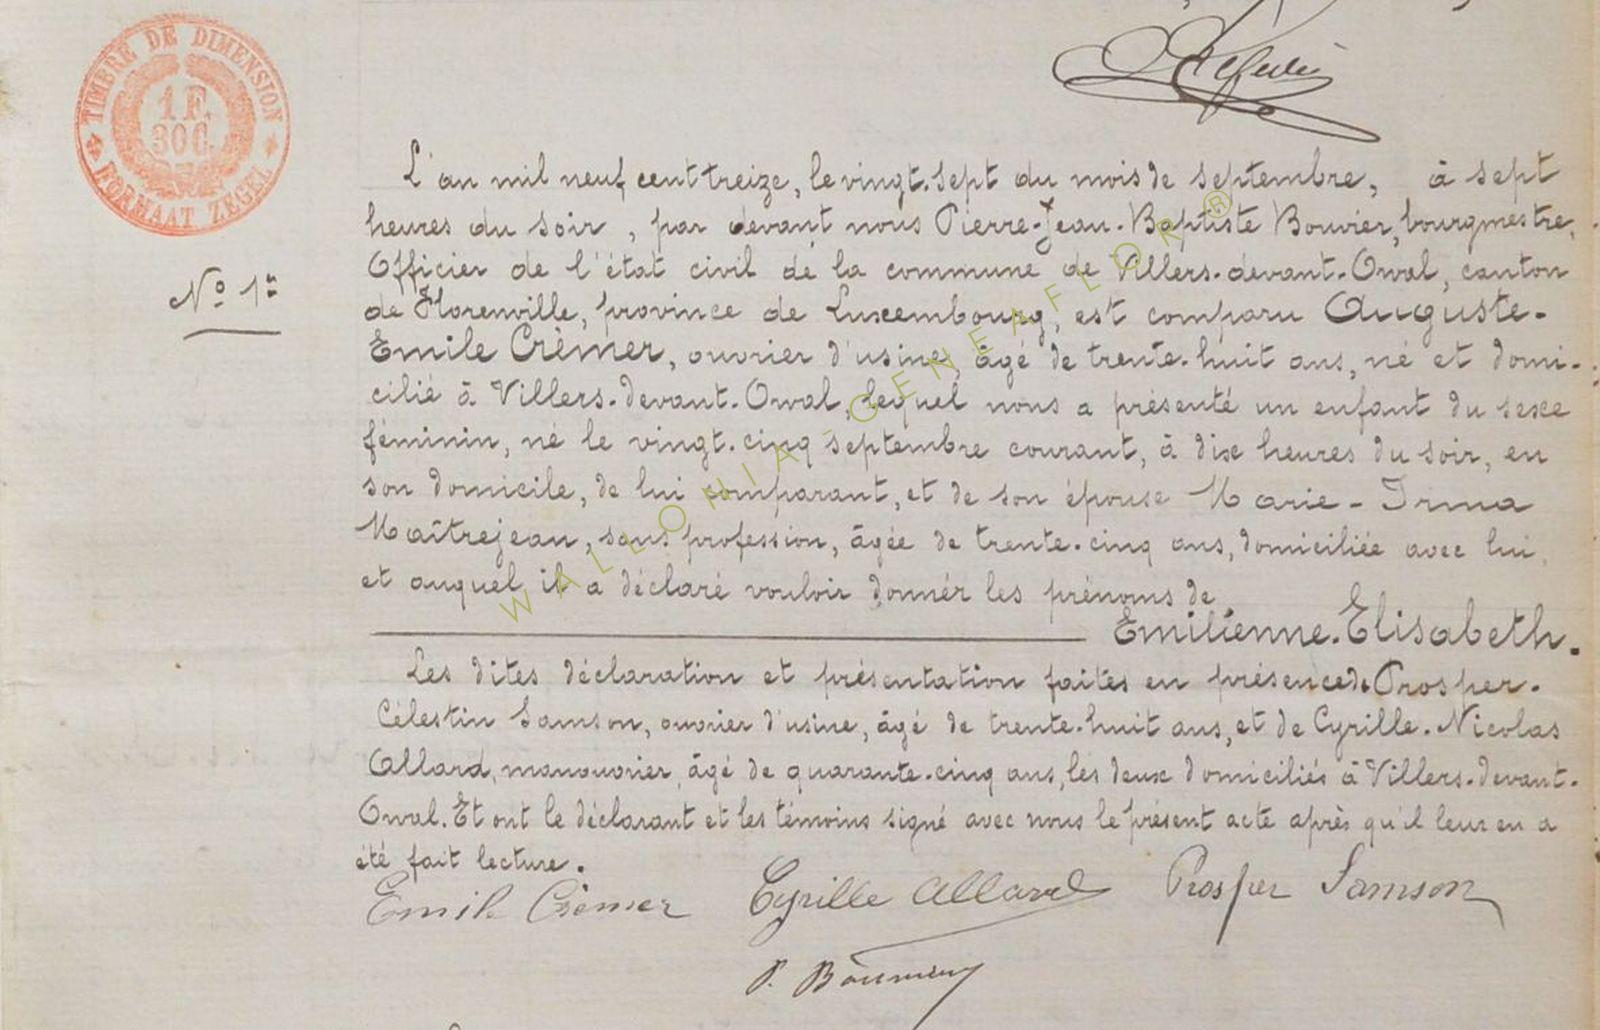 TIMBRE DE DIMENSION
1 F.
30 C.
FORMAAT ZEGEL
L'an mil neuf cent treize, le vingt-sept du mois de septembre, à sept
heures du soir, par devant nous Pierre-Jean-Baptiste Bouvier, bourgmestre,
Officier de l'état civil de la commune de Villers-devant-Orval, canton
N° 1er
de Florenville, province de Luxembourg, est comparu Auguste-
Emile Crèmer, ouvrier d'usine, âgé de trente-huit ans, né et domi-
cilié à Villers-devant-Orval, lequel nous a présenté un enfant du sexe
féminin, né le vingt-cinq septembre courant, à dix heures du soir, en
son domicile, de lui comparant, et de son épouse Marie-Irma
Maîtrejean, sans profession, âgée de trente-cinq ans, domiciliée avec lui,
et auquel il a déclaré vouloir donner les prénoms de
Emilienne-Elisabeth.
Les dites déclaration et présentation faites en présence de Prosper-
Célestin Samson, ouvrier d'usine, âgé de trente-huit ans, et de Cyrille-Nicolas
Allard, manouvrier, âgé de quarante-cinq ans, les deux domiciliés à Villers-devant-
Orval. Et ont le déclarant et les témoins signé avec nous le présent acte après qu'il leur en a
été fait lecture.
Emile Crèmer Cyrille Allard Prosper Samson
P. Bouvier
WALLONIA-GENEAFLOR ®